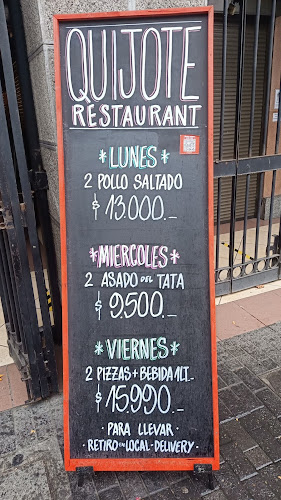 QUIJOTE
RESTAURANT
*LUNES*
2 POLLO SALTADO
$ 13.000.-
*MIERCOLES*
2 ASADO DEL TATA
$ 9.500.-
*VIERNES*
2 PIZZAS + BEBIDA 1LT.-
$ 15.990.-
PARA LLEVAR
· RETIRO EN LOCAL · DELIVERY ·